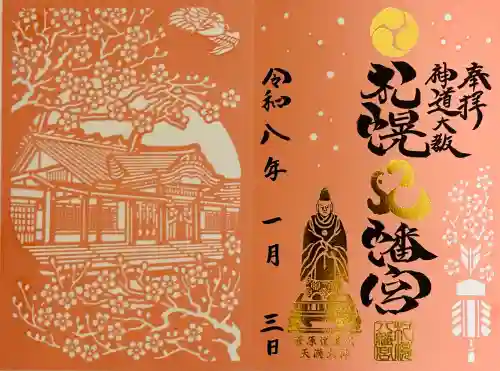 奉拝
神道大教
札幌
八幡宮
令和八年 一月 三日
菅原道真公
天満天神
札幌
八幡宮